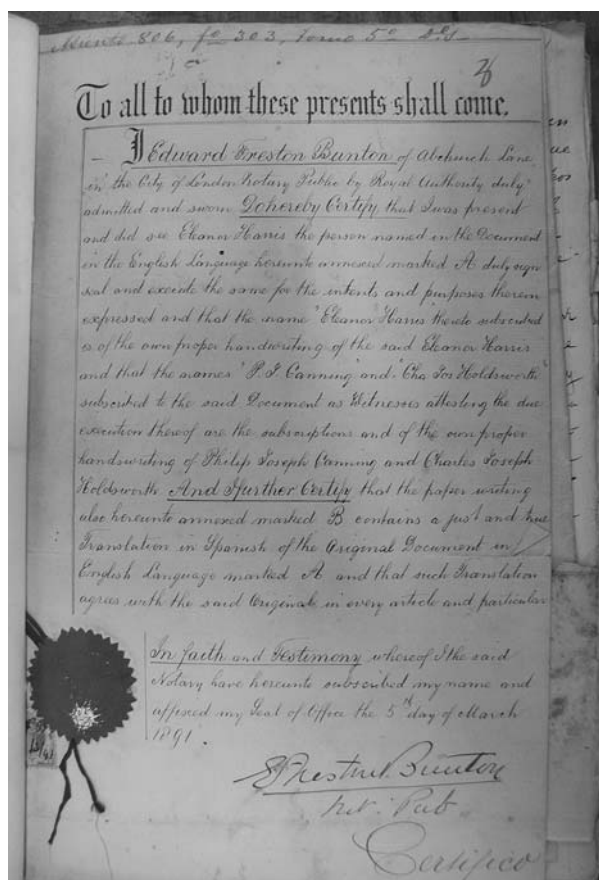 Asiento 806, fº 303, Tomo 5º
To all to whom these presents shall come,
I Edward Freston Bunton of Abchurch Lane
in the City of London Notary Public by Royal Authority duly
admitted and sworn Do hereby Certify that I was present
and did see Eleanor Harris the person named in the Document
in the English Language hereunto annexed marked A duly sign
seal and execute the same for the intents and purposes therein
expressed and that the name "Eleanor Harris" thereto subscribed
is of the own proper handwriting of the said Eleanor Harris
and that the names "P. J. Canning" and "Chas Jos Holdsworth"
subscribed to the said Document as Witnesses attesting the due
execution thereof are the subscriptions and of the own proper
handwriting of Philip Joseph Canning and Charles Joseph
Holdsworth And I further Certify that the paper writing
also hereunto annexed marked B contains a just and true
Translation in Spanish of the Original Document in
English Language marked A and that such Translation
agrees with the said Original in every article and particular
In faith and Testimony whereof I the said
Notary have hereunto subscribed my name and
affixed my Seal of Office the 5th day of March
1891
E Freston Bunton
Not: Pub.
Certifico